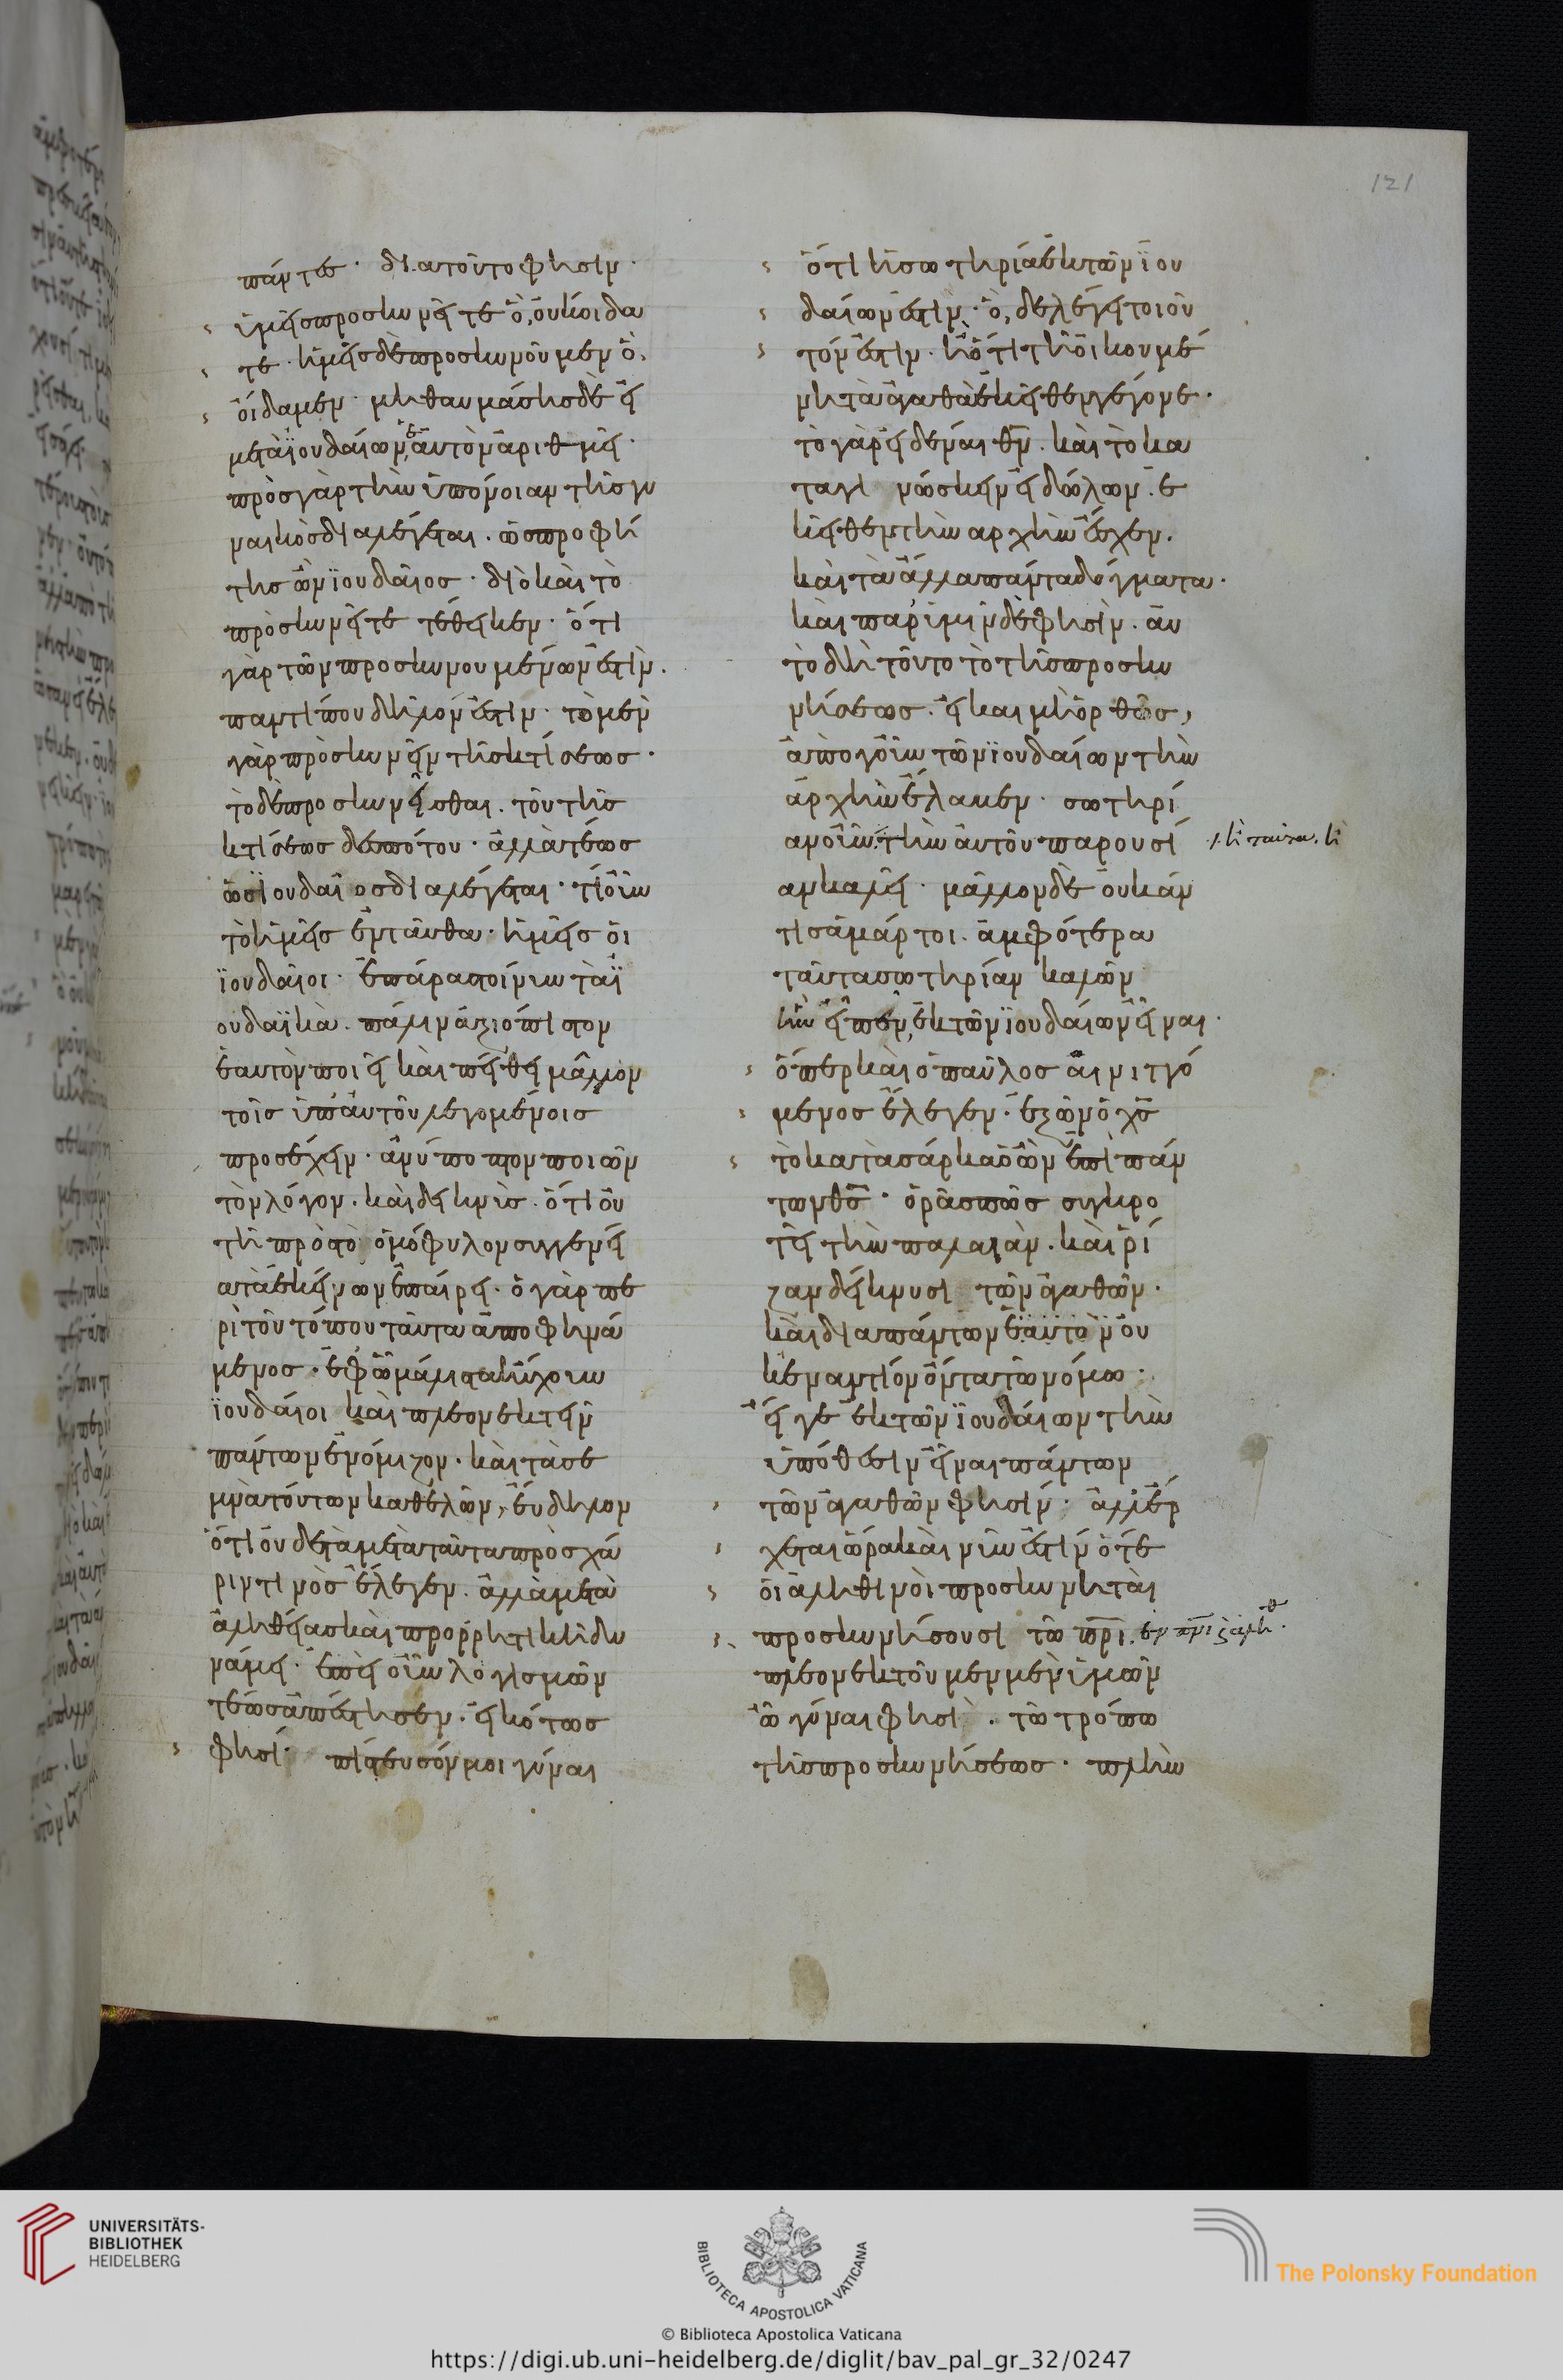 πάντες· διατοῦτο φησιν·
ὑμεῖς προσκυνεῖτε ὃ, οὐκ οἴδα
τε· ἡμεῖς δὲ προσκυνοῦμεν ὃ,
οἴδαμεν· μὴ θαυμάσης δὲ εἰ
μετὰ ϊουδαίων, ἑαυτὸν ἀριθμεῖ·
πρὸς γὰρ τὴν ὑπόνοιαν τῆς γυ
ναικὸς διαλέγεται. ὡς προφή
της ὢν ϊουδαῖος· διὸ καὶ τὸ
προσκυνεῖτε τέθεικεν· ὅτι
γὰρ τῶν προσκυνουμένων ἐστὶν.
παντί που δῆλον ἐστιν· τὸ μὲν
γὰρ προσκυνεῖν τῆς κτίσεως·
τὸ δὲ προσκυνεῖσθαι. τοῦ τῆς
κτίσεως δεσπότου· ἀλλὰ τέως
ὡς ϊουδαῖος διαλέγεται· τὶ οὖν
τὸ ἡμεῖς ἐνταῦθα· ἡμεῖς οἱ
ϊουδαῖοι· ἐπάρας τοίνυν τὰ ϊ
ουδαϊκὰ. πάλιν ἀξιόπιστον
ἑαυτὸν ποιεῖ καὶ πείθει μᾶλλον
τοῖς ὑπ' αὐτοῦ λεγομένοις
προσέχειν· ἀνύποπτον ποιῶν
τὸν λόγον. καὶ δεικνὺς. ὅτι οὐ
τῆ πρὸς τὸ ὁμόφυλον συγγενεί
α τὰ ἐκείνων ἐπαίρει· ὁ γὰρ πε
ρὶ τοῦ τόπου ταῦτα ἀποφηνά
μενος· ἐφ' ὧ μάλιστα ηὔχουν
ϊουδαῖοι καὶ πλεονεκτεῖν
πάντων ἐνόμιζον· καὶ τὰ σε
μνὰ τούτων καθελὼν, εὔδηλον
ὅτι οὐδὲ τὰ μετὰ ταῦτα πρὸς χά
ριν τινὸς ἔλεγεν. ἀλλὰ μετὰ
ἀληθείας καὶ προρρητικῆ δυ
νάμει· ἐπεὶ οὖν λογισμῶν
τέως ἀπέστησεν· εἰκότως
φησί· πίστευσόν μοι γύναι
ὅτι ἡ σωτηρία ἐκ τῶν ϊου
δαίων ἐστίν· ὃ, δὲ λέγει τοιοῦ
τόν ἐστιν· ἢ ὅτι τῆ οἰκουμέ
νη τὰ ἀγαθὰ ἐκεῖθεν γέγονε·
τὸ γὰρ εἰδέναι θν. καὶ τὸ κα
ταγινώσκειν εἰδώλων. ἐ
κεῖθεν τὴν ἀρχὴν ἔσχεν.
καὶ τὰ ἄλλα πάντα δόγματα·
καὶ παρ' ὑμῖν δὲ φησὶν. αὐ
τὸ δὴ τοῦτο τὸ τῆς προσκυ
νήσεως. εἰ καὶ μὴ ὀρθῶς,
ἀπὸ γοῦν τῶν ϊουδαίων τὴν
ἀρχὴν ἔλαβεν· σωτηρί
αν οὖν ἢ ταῦτα. ἢ
τὴν αὐτοῦ παρουσί
αν καλεῖ· μᾶλλον δὲ οὐκ ἄν
τις ἁμάρτοι. ἀμφότερα
ταῦτα σωτηρίαν καλῶν
ἣν εἶπεν, ἐκ τῶν ϊουδαίων εἶναι·
ὅπερ καὶ ὁ παῦλος αἰνιττό
μενος ἔλεγεν· ἐξ ὧν ὁ χς
τὸ κατὰ σάρκα ὁ ὢν ἐπὶ πάν
των θς· ὁρᾶς πῶς συγκρο
τεῖ τὴν παλαιὰν. καὶ ῥί
ζαν δείκνυσι τῶν ἀγαθῶν·
καὶ διαπάντων ἑαυτὸν οὐ
κ ἐναντίον ὄντα τῶ νόμω·
εἴ γε ἐκ τῶν ϊουδαίων τὴν
ὑπόθεσιν εἶναι πάντων
τῶν ἀγαθῶν φησίν· ἀλλ' ἔρ
χεται ὥρα καὶ νῦν ἐστὶν ὅτε
οἱ ἀληθινοὶ προσκυνηταὶ
προσκυνήσουσι τῶ πρι. ἐν πνι
πλεονεκτοῦμεν μὲν ὑμῶν
ὦ γύναι φησὶ. τῶ τρόπω
τῆς προσκυνήσεως· πλὴν
121
UNIVERSITÄTS-
BIBLIOTHEK
HEIDELBERG
BIBLIOTECA APOSTOLICA VATICANA
© Biblioteca Apostolica Vaticana
The Polonsky Foundation
https://digi.ub.uni-heidelberg.de/diglit/bav_pal_gr_32/0247